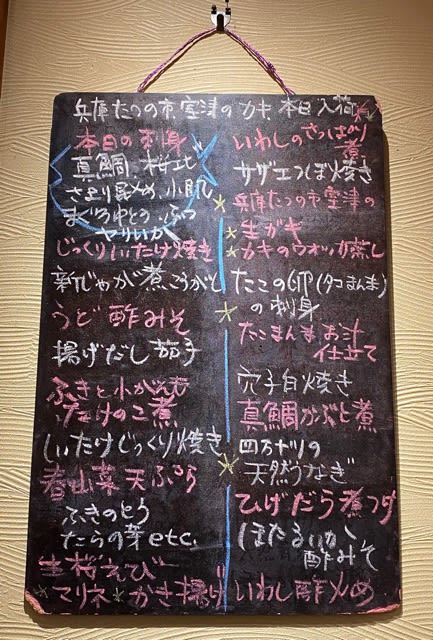 兵庫たつの市室津のカキ本日入荷
本日の刺身
真鯛 桜〆
さより昆〆め 小肌
まぐろ中とろ ぶつ
ヤリいか
じっくりいたけ焼き
新じゃが煮っころがし
うど酢みそ
揚げだし茄子
ふきと小がんも
たけのこ煮
しいたけじっくり焼き
春山菜天ぷら
ふきのとう
たらの芽etc.
生桜えび
マリネ かき揚げ
いわしのさっぱり煮
サザエつぼ焼き
兵庫たつの市室津の
生ガキ
カキのウオッカ蒸し
たこの卵(タコまんま)
の刺身
たこまんまお汁
仕立て
穴子白焼き
真鯛かぶと煮
四万十川の
天然うなぎ
ひげだら煮つけ
ほたるいか
酢みそ
いわし酢〆め